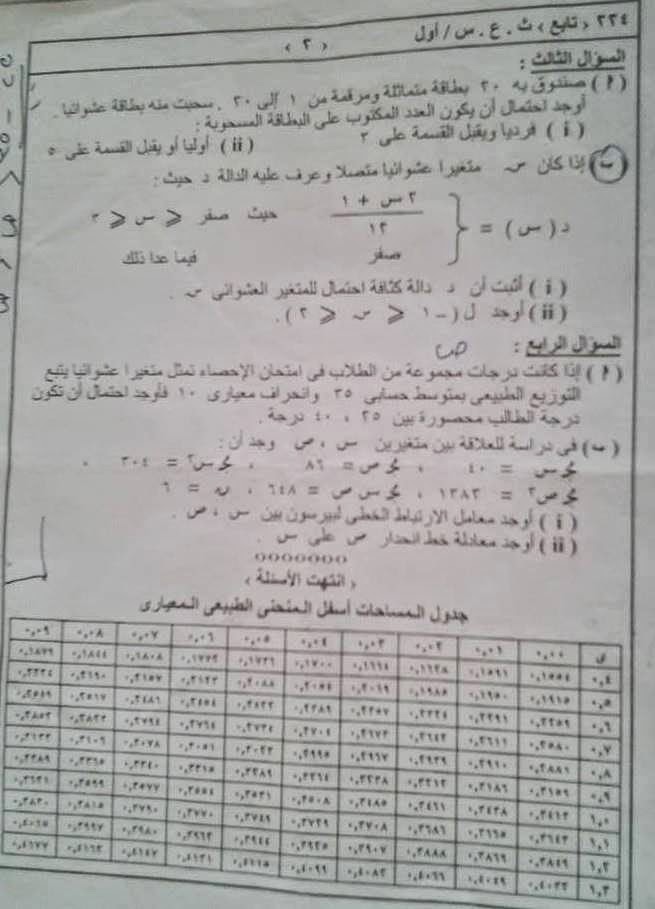 ٢٢٤ < تابع > ث . ع . س / أول
< ٢ >
السؤال الثالث :
( أ ) صندوق به ٢٠ بطاقة متماثلة ومرقمة من ١ إلى ٢٠ . سحبت منه بطاقة عشوائيا .
أوجد احتمال أن يكون العدد المكتوب على البطاقة المسحوبة :
( i ) فرديا ويقبل القسمة على ٣ ( ii ) أوليا أو يقبل القسمة على ٥
( ب ) إذا كان س متغيرا عشوائيا متصلا وعرف عليه الدالة د حيث :
د ( س ) = { ٢ س + ١ / ١٢ حيث صفر ⩽ س ⩽ ٣
صفر فيما عدا ذلك
( i ) أثبت أن د دالة كثافة احتمال للمتغير العشوائى س .
( ii ) أوجد ل ( – ١ ⩽ س ⩽ ٢ ) .
السؤال الرابع :
( أ ) إذا كانت درجات مجموعة من الطلاب فى امتحان الإحصاء تمثل متغيرا عشوائيا يتبع
التوزيع الطبيعى بمتوسط حسابى ٣٥ وانحراف معيارى ١٠ فأوجد احتمال أن تكون
درجة الطالب محصورة بين ٢٥ ، ٤٠ درجة .
( ب ) فى دراسة للعلاقة بين متغيرين س ، ص وجد أن :
مجـ س = ٤٠ ، مجـ ص = ٨٦ ، مجـ س٢ = ٣٠٤ ،
مجـ ص٢ = ١٣٨٣ ، مجـ س ص = ٦٤٨ ، ن = ٦
( i ) أوجد معامل الارتباط الخطى لبيرسون بين س ، ص .
( ii ) أوجد معادلة خط انحدار ص على س .
ooooooo
< انتهت الأسئلة >
جدول المساحات أسفل المنحنى الطبيعى المعيارى
ى ٠,٠٠ ٠,٠١ ٠,٠٢ ٠,٠٣ ٠,٠٤ ٠,٠٥ ٠,٠٦ ٠,٠٧ ٠,٠٨ ٠,٠٩
٠,٤ ٠,١٥٥٤ ٠,١٥٩١ ٠,١٦٢٨ ٠,١٦٦٤ ٠,١٧٠٠ ٠,١٧٣٦ ٠,١٧٧٢ ٠,١٨٠٨ ٠,١٨٤٤ ٠,١٨٧٩
٠,٥ ٠,١٩١٥ ٠,١٩٥٠ ٠,١٩٨٥ ٠,٢٠١٩ ٠,٢٠٥٤ ٠,٢٠٨٨ ٠,٢١٢٣ ٠,٢١٥٧ ٠,٢١٩٠ ٠,٢٢٢٤
٠,٦ ٠,٢٢٥٩ ٠,٢٢٩١ ٠,٢٣٢٤ ٠,٢٣٥٧ ٠,٢٣٨٩ ٠,٢٤٢٢ ٠,٢٤٥٤ ٠,٢٤٨٦ ٠,٢٥١٧ ٠,٢٥٤٩
٠,٧ ٠,٢٥٨٠ ٠,٢٦١١ ٠,٢٦٤٢ ٠,٢٦٧٣ ٠,٢٧٠٤ ٠,٢٧٣٤ ٠,٢٧٦٤ ٠,٢٧٩٤ ٠,٢٨٢٣ ٠,٢٨٥٢
٠,٨ ٠,٢٨٨١ ٠,٢٩١٠ ٠,٢٩٣٩ ٠,٢٩٦٧ ٠,٢٩٩٥ ٠,٣٠٢٣ ٠,٣٠٥١ ٠,٣٠٧٨ ٠,٣١٠٦ ٠,٣١٣٣
٠,٩ ٠,٣١٥٩ ٠,٣١٨٦ ٠,٣٢١٢ ٠,٣٢٣٨ ٠,٣٢٦٤ ٠,٣٢٨٩ ٠,٣٣١٥ ٠,٣٣٤٠ ٠,٣٣٦٥ ٠,٣٣٨٩
١,٠ ٠,٣٤١٣ ٠,٣٤٣٨ ٠,٣٤٦١ ٠,٣٤٨٥ ٠,٣٥٠٨ ٠,٣٥٣١ ٠,٣٥٥٤ ٠,٣٥٧٧ ٠,٣٥٩٩ ٠,٣٦٢١
١,١ ٠,٣٦٤٣ ٠,٣٦٦٥ ٠,٣٦٨٦ ٠,٣٧٠٨ ٠,٣٧٢٩ ٠,٣٧٤٩ ٠,٣٧٧٠ ٠,٣٧٩٠ ٠,٣٨١٥ ٠,٣٨٣٠
١,٢ ٠,٣٨٤٩ ٠,٣٨٦٩ ٠,٣٨٨٨ ٠,٣٩٠٧ ٠,٣٩٢٥ ٠,٣٩٤٤ ٠,٣٩٦٢ ٠,٣٩٨٠ ٠,٣٩٩٧ ٠,٤٠١٥
١,٣ ٠,٤٠٣٢ ٠,٤٠٤٩ ٠,٤٠٦٦ ٠,٤٠٨٢ ٠,٤٠٩٩ ٠,٤١١٥ ٠,٤١٣١ ٠,٤١٤٧ ٠,٤١٦٢ ٠,٤١٧٧